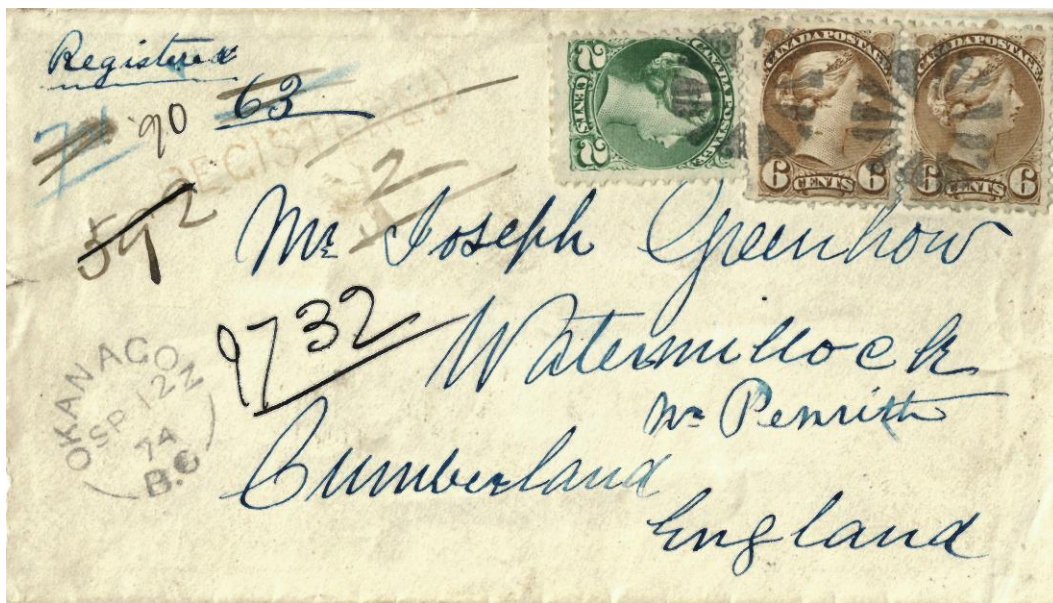 Registered
63
71
'90
REGISTERED
2
592
CANADA POSTAGE
2 CENTS 2
CANADA POSTAGE
6 CENTS 6
CANADA POSTAGE
6 CENTS 6
Mr Joseph Greenhow
9732
Watermillock
Nr Penrith
Cumberland
England
OKANAGON
SP 12
74
B.C